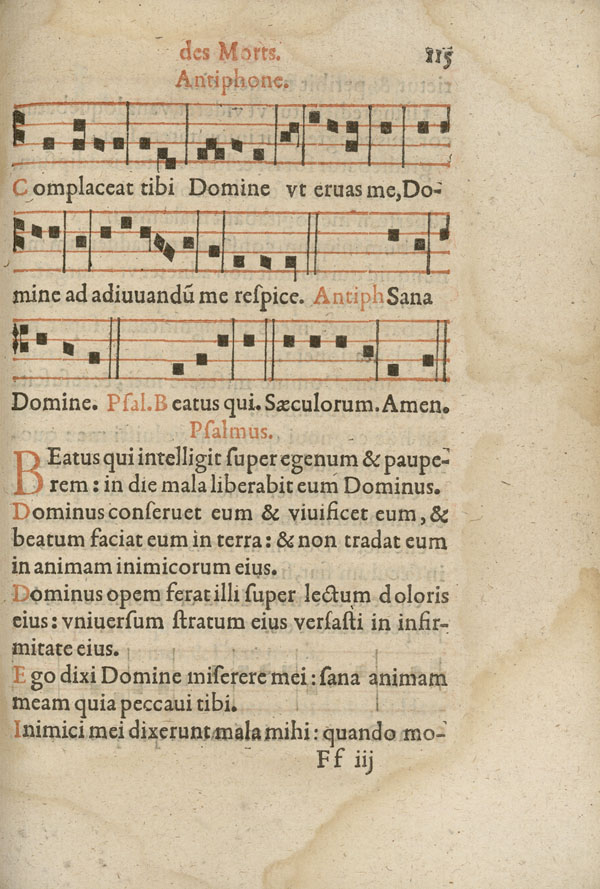 des Morts. 115
Antiphone.
Complaceat tibi Domine vt eruas me, Do-
mine ad adiuuandū me reſpice. Antiph Sana
Domine. Pſal. Beatus qui. Sæculorum. Amen.
Pſalmus.
BEatus qui intelligit ſuper egenum & paupe-
rem: in die mala liberabit eum Dominus.
Dominus conſeruet eum & viuificet eum, &
beatum faciat eum in terra: & non tradat eum
in animam inimicorum eius.
Dominus opem ferat illi ſuper lectum doloris
eius: vniuerſum ſtratum eius verſaſti in infir-
mitate eius.
Ego dixi Domine miſerere mei: ſana animam
meam quia peccaui tibi.
Inimici mei dixerunt mala mihi: quando mo-
Ff iij